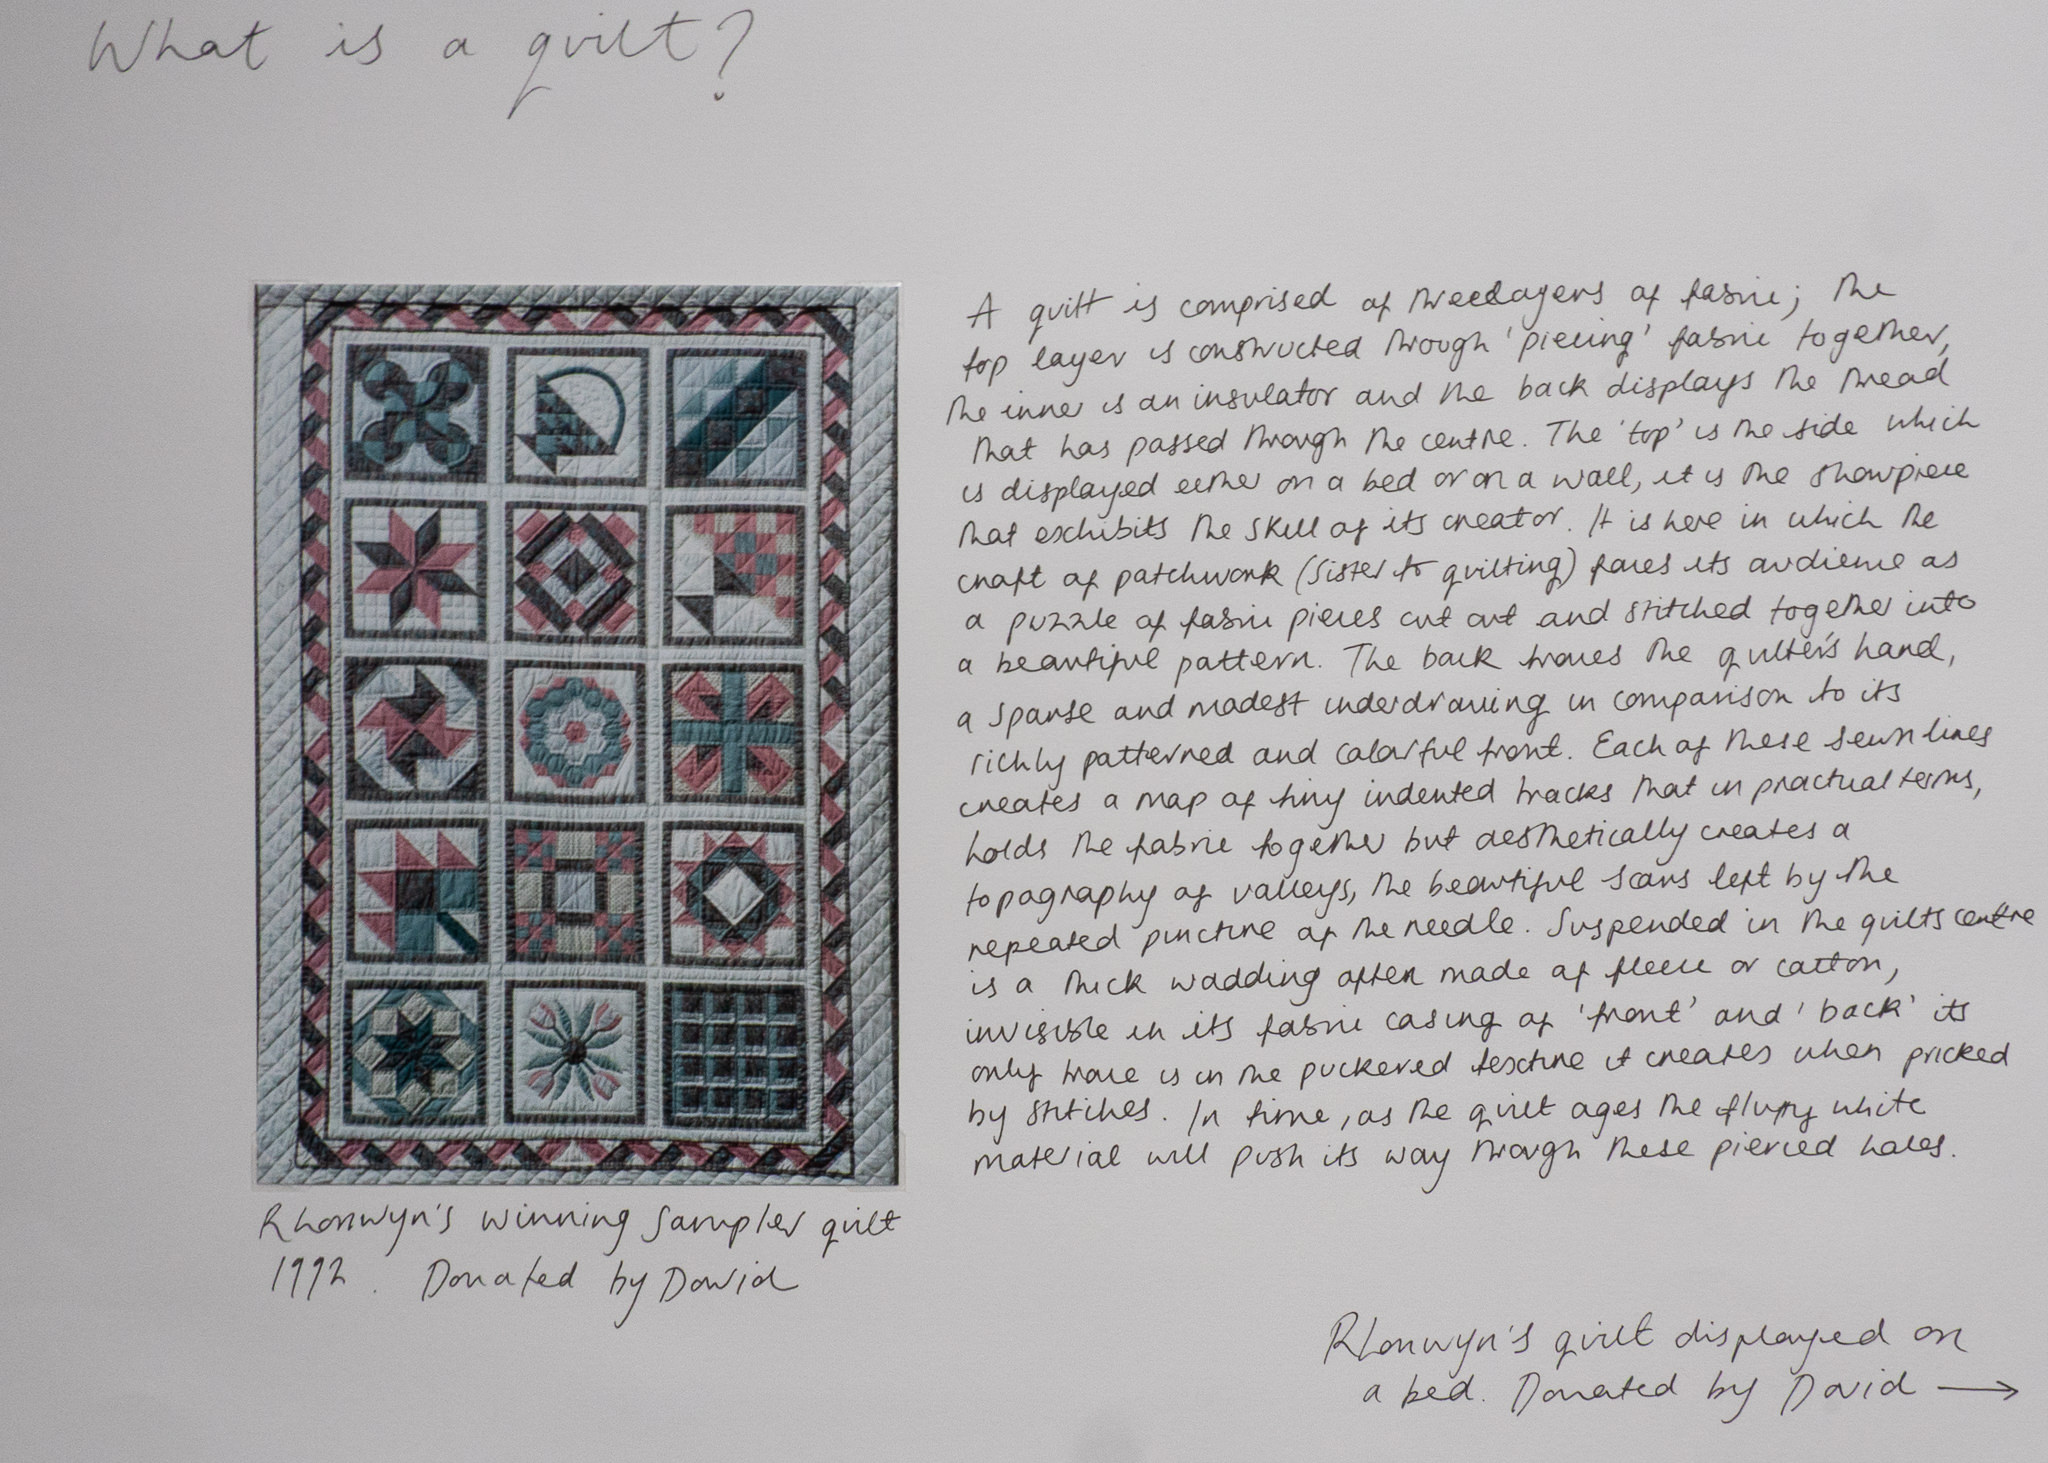 What is a quilt?
A quilt is comprised of three layers of fabric; the
top layer is constructed through 'piecing' fabric together,
the inner is an insulator and the back displays the thread
that has passed through the centre. The 'top' is the side which
is displayed either on a bed or on a wall, it is the showpiece
that exhibits the skill of its creator. It is here in which the
craft of patchwork (sister to quilting) faces its audience as
a puzzle of fabric pieces cut out and stitched together into
a beautiful pattern. The back traces the quilter's hand,
a sparse and modest underdrawing in comparison to its
richly patterned and colorful front. Each of these sewn lines
creates a map of tiny indented tracks that in practical terms,
holds the fabric together but aesthetically creates a
topography of valleys, the beautiful scars left by the
repeated puncture of the needle. Suspended in the quilts centre
is a thick wadding often made of fleece or cotton,
invisible in its fabric casing of 'front' and 'back' its
only trace is in the puckered texture it creates when pricked
by stitches. In time, as the quilt ages the fluffy white
material will push its way through these pierced holes.
Rhonwyn's winning sampler quilt
1992. Donated by David
Rhonwyn's quilt displayed on
a bed. Donated by David →